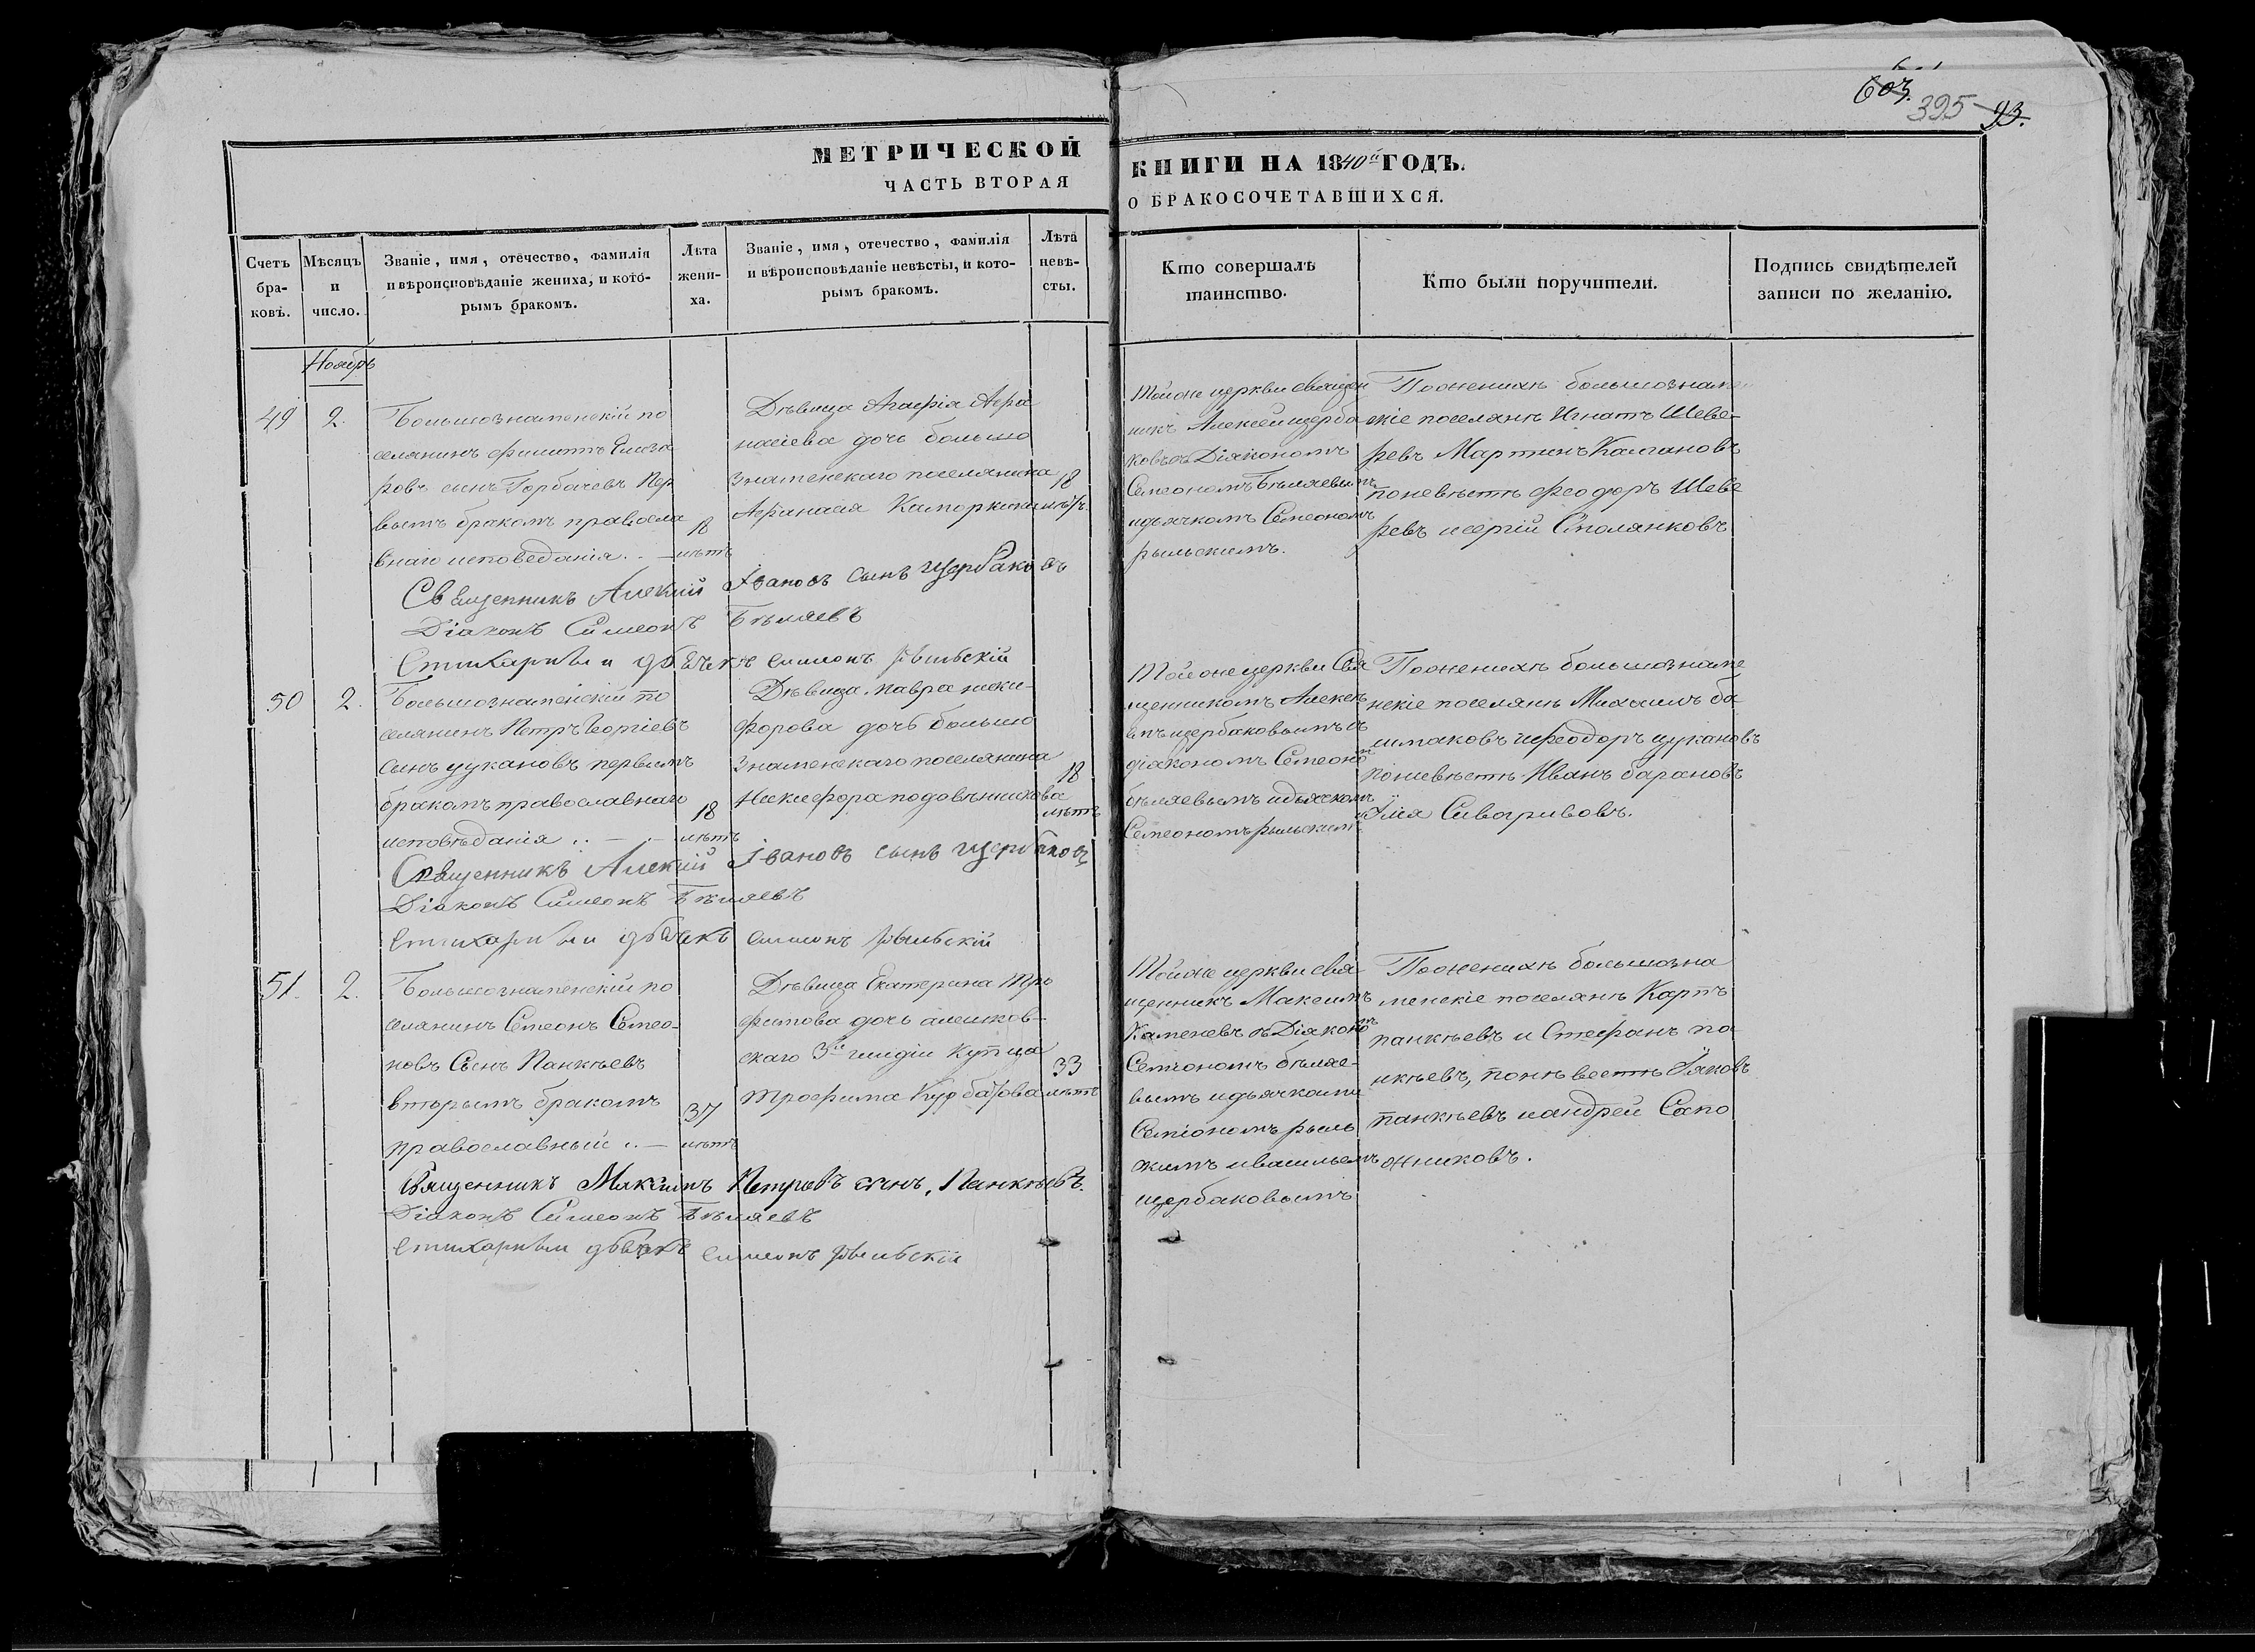 603.
395
93.
МЕТРИЧЕСКОЙ КНИГИ НА 1840й ГОДЪ.
ЧАСТЬ ВТОРАЯ О БРАКОСОЧЕТАВШИХСЯ.
Счетъ
бра-
ковъ.
Мѣсяцъ
и
число.
Званіе, имя, отечество, фамилія
и вѣроисповѣданіе жениха, и кото-
рымъ бракомъ.
Лѣта
жени-
ха.
Званіе, имя, отечество, фамилія
и вѣроисповѣданіе невѣсты, и кото-
рымъ бракомъ.
Лѣта
невѣ-
сты.
Кто совершалъ
таинство.
Кто были поручители.
Подпись свидѣтелей
записи по желанію.
Ноябрь
49
2.
Большознаменскій по
селянинъ Филиппъ
ровъ сынъ Горбачевъ Пер
вымъ бракомъ правосла
внаго исповеданія . . —
18
лѣтъ
Дѣвица Агафія Афа
насіева дочь большо
знаменскаго поселянина
Афанасія
18
лѣтъ
Тойже церкви священ
никъ Алексей щерба
ковъ съ Діякономъ
Семеономъ Бѣляевымъ
идьячкомъ Семеономъ
рыльскимъ.
Поженихѣ большознамен
скіе поселянѣ Игнатъ Шеве-
ревъ Мартинъ Калгановъ
поневѣстѣ Феодоръ Шеве
ревъ исергій Столянковъ
Священникъ Алекѣй Івановъ сынъ Щербаковъ
Діаконъ Симеонъ Бѣляевъ
Стихарный дьячекъ симеонъ Рыльскій
50
2.
Большознаменскій по
селянинъ Петръ Георгіевъ
сынъ цукановъ первымъ
бракомъ православнаго
исповѣданія . . —
18
лѣтъ
Дѣвица Мавра ники-
форова дочь большо
знаменскаго поселянина
Никифора подовѣнникова
18
лѣтъ
Тойже церкви Свя
щенникомъ Алексѣ
емъ щербаковымъ съ
діякономъ Семеоно
бѣляевымъ идьячкомъ
Семеономъ рыльским
Поженихѣ большознаме
нскіе поселянѣ Михаилъ ба
шмаковъ иФеодоръ цукановъ
поневѣстѣ Иванъ барановъ
Илія Сивогривовъ.
Священникъ Алекѣй Івановъ сынъ щербаковъ
Діаконъ Симеонъ Бѣляевъ
Стихарный дьячекъ симеонъ Рыльскій
51.
2.
Большознаменскій по
селянинъ Семеонъ Семео-
новъ Сынъ Панкѣевъ
вторымъ бракомъ
православный . . —
37
лѣтъ
Дѣвица Екатерина Тро
фимова дочь алешков-
скаго 3й гилдіи купца
Трофима Курбатова
33
лѣтъ
Тойже церкви свя
щенникъ Максимъ
Каменевъ съ Діяконо
Семіономъ бѣляе-
вымъ идьячками
Семіономъ рыль
скимъ ивасильемъ
щербаковымъ
Поженихѣ большозна
менскіе поселянѣ Карпъ
панкѣевъ и Стефанъ па
нкѣевъ, поневестѣ Іяковъ
панкѣевъ иандрей Сапо
жниковъ.
Священникъ Максимъ Петровъ сынъ, Панкѣевъ.
Діаконъ Симеонъ Бѣляевъ
Стихарный дьячекъ симеонъ Рыльскій